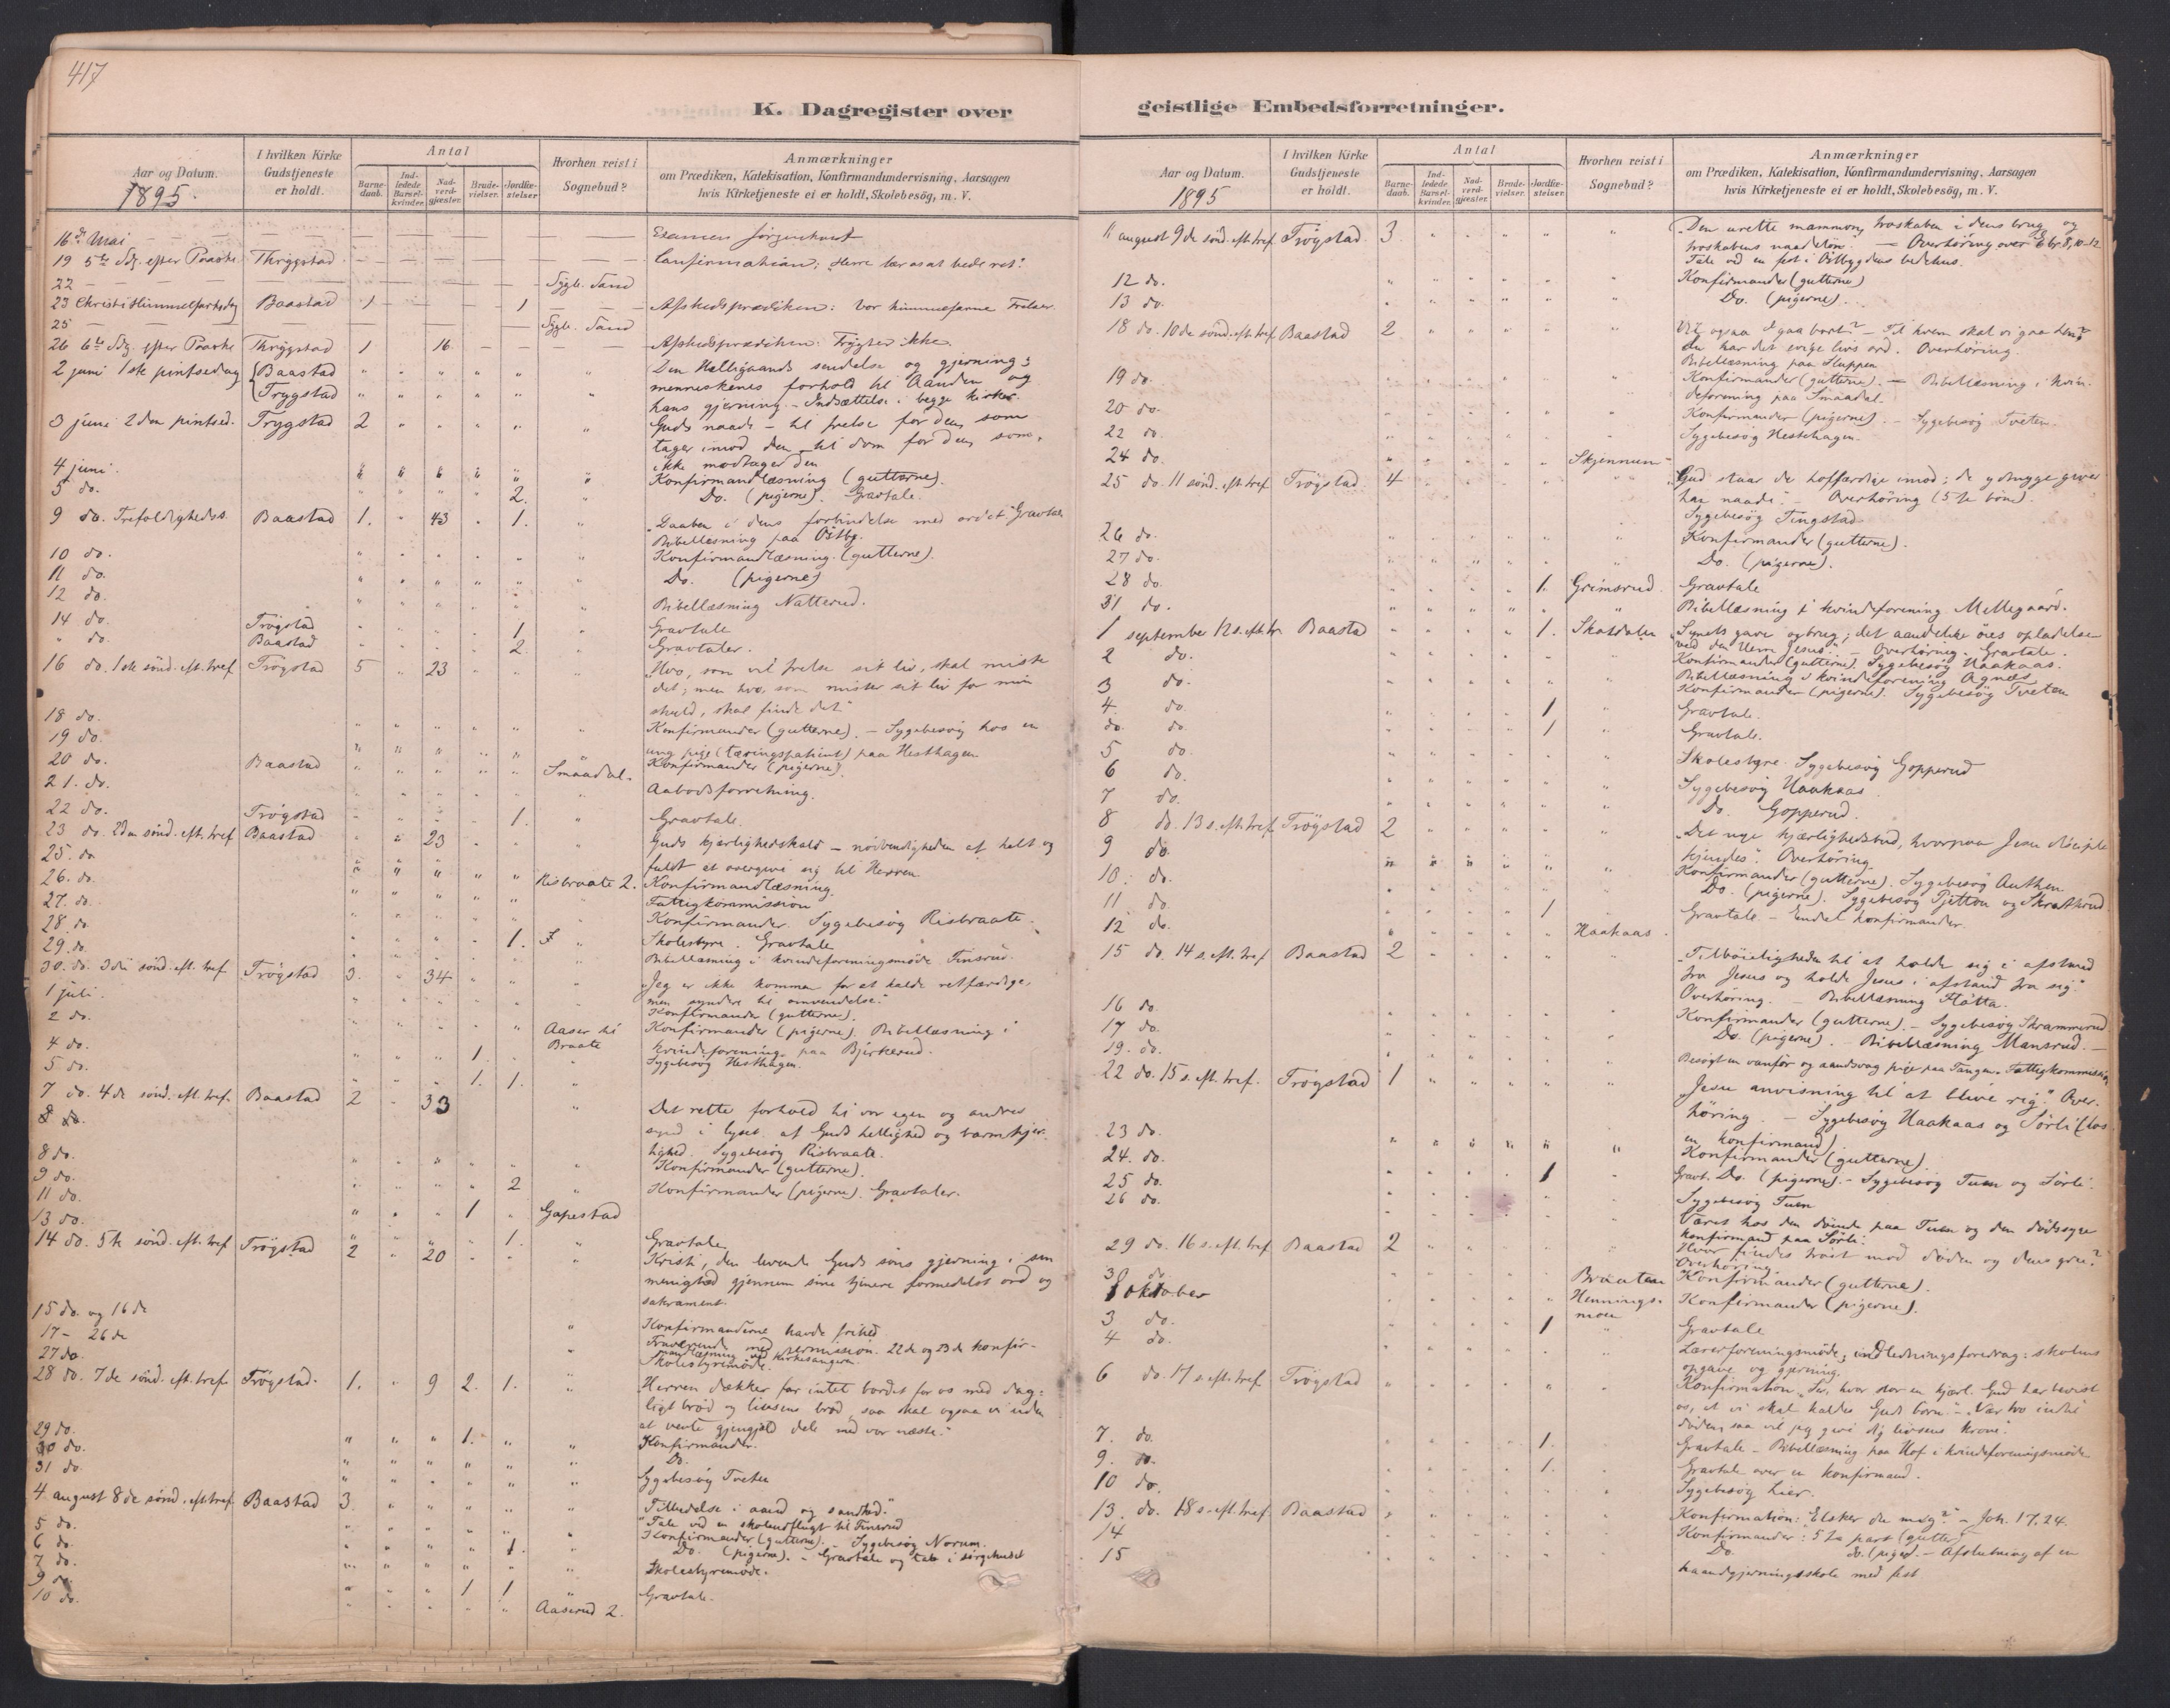 417
K. Dagregister over
Aar og Datum.
1895.
I hvilken Kirke
Gudstjeneste
er holdt.
Antal
Barne-
daab.
Ind-
ledede
Barsel-
kvinder.
Nad-
verd-
gjæster.
Brude-
vielser.
Jordfæ-
stelser
Hvorhen reist i
Sognebud?
Anmærkninger
om Prædiken, Katekisation, Konfirmandundervisning, Aarsagen
hvis Kirketjeneste ei er holdt, Skolebesög, m. V.
16de Mai — — — — — — — Examen
19 5te Sdg. efter Paaske Thrygstad — — — — — — Confirmation: "Herre lær os at bede ret".
22 — — — — — — — Sygb. Sand
23 Christi Himmelfartsdag Baastad 1 — — — 1 — Afskedsprædiken: Vor himmelfarne Frelser.
25 — — — — — — — Sygb. Sand
26 6te Sdg. efter Paaske Thrygstad 1 16 — — — Afskedsprædiken: Frygter ikke.
2 juni 1ste pintsedag {Baastad " " " " " " Den Helligaands sendelse og gjerning;
{Trygstad " " " " " " menneskenes forhold til Aanden og
hans gjerning. - Indsættelse i begge kirker.
3 juni 2den pintsed. Trygstad 2 " " " " " Guds naade - til frelse for dem, som
tager imod den, til dom for dem, som
ikke modtager den
4 juni. " " " " " " Konfirmandlæsning (gutterne).
5 do. " " " " 2. " Do. (pigerne). Gravtale.
9 do. Trefoldigheds. Baastad 1. " 43 " 1. " "Daaben i dens forbindelse med ordet". Gravtale
Bibellæsning paa Östby.
10 do. " " " " " " Konfirmandlæsning. (gutterne).
11 do. " " " " " " Do. (pigerne)
12 do. " " " " " " Bibellæsning Natterud.
14 do. Trögstad " " " " 1. " Gravtale
" do. Baastad " " " " 2. " Gravtaler.
16 do. 1ste sönd. eft. tref. Trögstad 5 " 23 " " " "Hvo, som vil frelse sit liv, skal miste
det; men hvo, som mister sit liv for min
skyld, skal finde det"
18 do. " " " " " " Konfirmander (gutterne). - Sygebesög hos en
ung pige (tæringspatient) paa Hesthagen
19 do. " " " " " " Konfirmander (pigerne).
20 do. Baastad " " " " " Smaadal.
21. do. Aabodsforretning.
22 do. Trögstad " " " " 1. " Gravtale.
23 do. 2den sönd. eft. tref Baastad " " 23 " " " Guds kjærlighedskald - nödvendigheden af helt og
fuldt at overgive sig til Herren.
25. do " " " " " Risbraate 2. Konfirmandlæsning.
26. do. " " " " " " Fattigkommission
27. do. " " " " " " Konfirmander. Sygebesög Risbraate.
28. do " " " " 1. " Skolestyre. Gravtale
29. do. " " " " " " Bibellæsning i kvindeforeningsmöde Finsrud.
30. do. 3die sönd. eft. tref Trögstad 3. " 34 " " " "Jeg er ikke kommen for at kalde retfærdige,
men syndere til omvendelse."
1 juli. " " " " " " Konfirmander (gutterne).
2 do. " " " " " Aaser til Konfirmander (pigerne). Bibellæsning i
Braate kvindeforening paa Bjerkerud.
4 do. " " " 1. " " Sygebesög Hesthagen.
5 do. " " " 1. 1. "
7 do. 4de sönd. eft. tref. Baastad 2 " 33 " Det rette forhold til vor egen og andres
8 do. synd i lyset af Guds hellighed og barmhjer-
tighed. Sygebesög Risbraate.
8 do. " " " " " " Konfirmander (gutterne).
9 do. " " " " 2 " Konfirmander (pigerne). Gravtaler.
11 do. " " " 1 " Gapestad
13 do. " " " " 1. " Gravtale
14 do. 5te sönd. eft. tref Trögstad 2 " 20 " " " Kristi, den levende Guds söns gjerning i sin
menighed gjennem sine tjenere formedelst ord og
sakrament.
15 do. og 16 do " Konfirmanderne havde frihed
17 - 26 do " Fraværende med permission. 22de og 23de konfir-
mandlæsning ved kirkesangeren.
27 do. Skolestyremöde.
28 do. 7de sönd. eft. tref. Trögstad. 1. " 9 2. 1. " Herren dækker for intet bordet for os med dag-
ligt bröd og livsens bröd, saa skal ogsaa vi uden
at vente gjengjæld dele med vor næste."
29 do. " " " 1. " " Konfirmander.
30 do. " " " " " " Do.
31 do. " " " " " " Sygebesög Tveten
4. august 8de sönd. eft. tref. Baastad 3. " " " " " "Tilbedelse i aand og sandhed."
Tale ved en skoleudflugt til Finsrud
5 do. " " " " " " Konfirmander (gutterne). - Sygebesög Norum.
6 do. " " " " 1. " Do. (pigerne). - Gravtale og tale i sörgehuset
7 do. " " " " " " Skolestyremöde.
9 do. " " " 1 1 " Gravtale.
10 do. " " " " " Aaserud 2.
geistlige Embedsforretninger.
Aar og Datum.
1895
I hvilken Kirke
Gudstjeneste
er holdt.
Antal
Barne-
daab.
Ind-
ledede
Barsel-
kvinder.
Nad-
verd-
gjæster.
Brude-
vielser.
Jordfæ-
stelser.
Hvorhen reist i
Sognebud?
Anmærkninger
om Prædiken, Katekisation, Konfirmandundervisning, Aarsagen
hvis Kirketjeneste ei er holdt, Skolebesög, m. V.
11 august 9de sönd. eft. tref. Trögstad. 3. " " " " " "Den urette mammon, troskaben i dens brug og
troskabens naadelön." - Overhöring over Ebr. 8, 10-12
Tale ved en fest i Östbygdens bedehus.
12 do. " " " " " " Konfirmander (gutterne)
13 do. " " " " " " Do. (pigerne).
18 do. 10de sönd. eft. tref Baastad 2 " " " " " Vil ogsaa I gaa bort? - Til hvem skal vi gaa hen?
du har det evige livs ord. Overhöring.
Bibellæsning paa Kuppen
19 do. " " " " " " Konfirmander (gutterne). - Bibellæsning i kvin-
deforening paa Smaadal.
20 do. " " " " " " Konfirmander (pigerne). - Sygebesög Tveten.
22 do. " " " " " " Sygebesög Hestehagen.
24 do. " " " " " Skjennum
25 do. 11 sönd. eft. tref. Trögstad 4 " " " " " "Gud staar de hoffærdige imod; de ydmyge giver
han naade". - Overhöring (5te bön).
Sygebesög Tingstad.
26 do. " " " " " " Konfirmander (gutterne).
27 do. " " " " " " Do. (pigerne).
28 do. " " " " 1. Grimsrud. Gravtale
31 do. " " " " " " Bibellæsning i kvindeforening Mellegaard.
1 september 12 s. eft. tr. Baasta " " " " 1. Skotdalen "Synets gave og brug; det aandelike öies opladelse
ved den Herre Jesus." - Overhöring. Gravtale.
2 do. " " " " " " Konfirmander (gutterne). Sygebesög Haakaas.
Bibellæsning i kvindeforening Agnæs
3 do. " " " " " " Konfirmander (pigerne). Sygebesög Tveten
4. do. " " " " 1 " Gravtale.
do. do. " " " " 1 " Gravtale.
5 do. " " " " " " Skolestyre. Sygebesög Gopperud
6 do. " " " " " " Sygebesög Haakaas
7 do. " " " " " " Do. Gopperud.
8 do. 13 s. eft. tref. Trögstad 2 " " " " " "Det nye kjærlighedsbud, hvorpaa Jesu disciple
kjendes". Overhöring.
9 do. " " " " " " Konfirmander (gutterne). Sygebesög Authen
10. do. " " " " " " Do. (pigerne). Sygebesög Pjetten og Skratterud
11. do. " " " " 1 " Gravtale. - Endel konfirmander.
12 do. " " " " " Haakaas.
15 do. 14 s. eft. tref Baastad 2 " " " " " "Tilböieligheden til at holde sig i afstand
fra Jesus og holde Jesus i afstand fra sig."
Overhöring. - Bibellæsning Flatta.
16 do. " " " " " " Konfirmander (gutterne). - Sygebesög Skrammerud
17 do. " " " " " " Do. (pigerne). - Bibellæsning Mansrud. -
19. do. " " " " " " Besögt en vanför og aandsvag pige paa Tangen. Fattigkommission
22 do. 15 s. eft. tref. Trögstad 1 " " " " " Jesu anvisning til at blive rig." Over-
höring. - Sygebesög Haakaas og Sörli (hos
en konfirmand)
23 do. " " " " " " Konfirmander (gutterne)
24. do. " " " " 1 " Gravt. Do. (pigerne). - Sygebesög Tuen og Sörli.
25 do. " " " " " " Sygebesög Tuen
26 do. " " " " " " Været hos den döende paa Tuen og den dödssyge
konfirmand paa Sörli.
29 do. 16 s. eft. tref. Baastad 2 " " " " " Hvor findes tröst mod döden og dens gru?
Overhöring.
30 do " " " " " Braaten Konfirmander (gutterne).
1 oktober " " " " " Hennings- Konfirmander (pigerne).
moen
3 do. " " " " 1 " Gravtale
4 do. " " " " " " Lærerforeningsmöde; indledningsforedrag: skolens
opgave og gjerning.
6 do. 17 s. eft. tref. Trögstad " " " " " " Konfirmation. Se, hvor stor en kjærl. Gud har bevist
os, at vi skal kaldes Guds börn". - Vær tro indtil
döden, saa vil jeg give dig livsens krone."
7. do. " " " " 1. " Gravtale - Bibellæsning paa Hof i kvindeforeningsmöde
9. do. " " " " 1. " Gravtale over en konfirmand.
10 do. " " " " " " Sygebesög Lier.
13. do. 18 s. eft. tref. Baastad " " " " " " Konfirmation: Elsker du mig? - Joh. 17, 24.
14 " " " " " " Konfirmander: 5te part (gutter)
15 " " " " " " Do. do. (piger). - Afslutning af en
haandgjerningsskole med fest